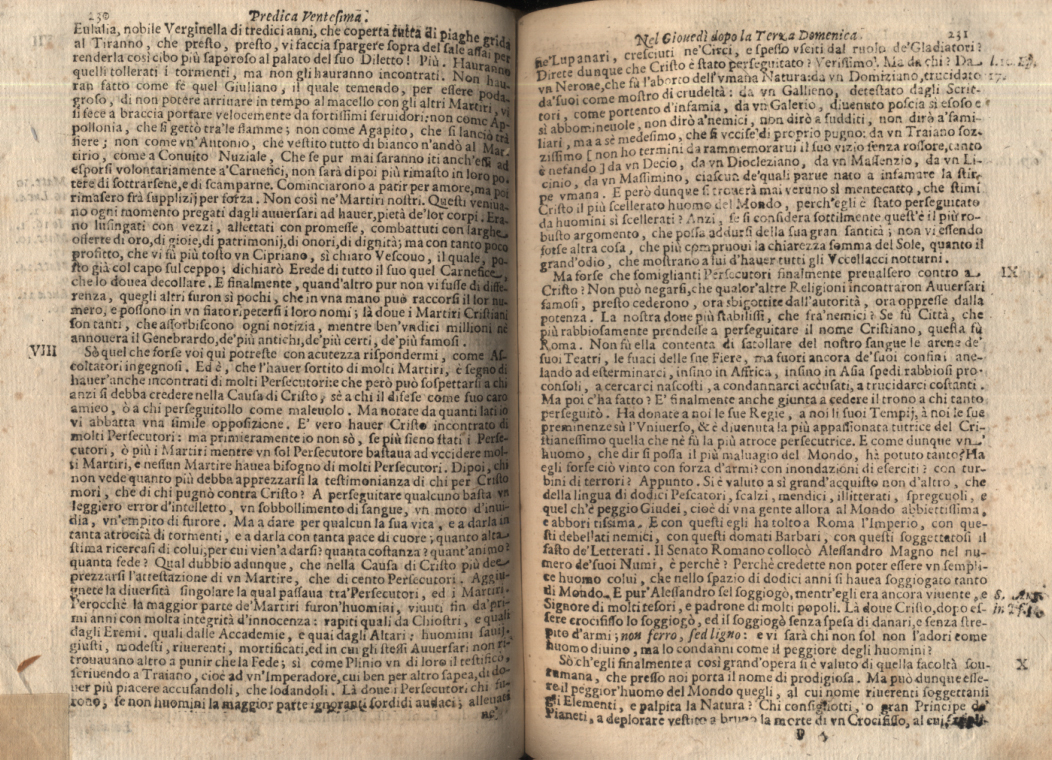 230 Predica Ventesima.
Eulalia, nobile Verginella di tredici anni, che coperta tutta di piaghe grida
al Tiranno, che presto, presto, vi faccia spargere sopra del sale assai per
renderla così cibo più saporoso al palato del suo Diletto! Più. Hauranno
quelli tollerati i tormenti, ma non gli hauranno incontrati. Non hau-
ran fatto come fè quel Giuliano, il quale temendo, per essere poda-
groso, di non potere arriuare in tempo al macello con gli altri Martiri, vi
si fece a braccia portare velocemente da fortissimi seruidori: non come Ap-
pollonia, che si gettò tra'le fiamme; non come Agapito, che si lanciò trà
fiere; non come vn'Antonio, che vestito tutto di bianco n'andò al Mar-
tirio, come a Conuito Nuziale. Che se pur mai saranno iti anch'essi ad
esporsi volontariamente a'Carnefici, non sarà di poi più rimasto in loro po-
tere di sottrarsene, e di scamparne. Cominciarono a patir per amore, ma poi
rimasero frà supplizij per forza. Non così ne'Martiri nostri. Questi veniua-
no ogni momento pregati dagli auuersari ad hauer, pietà de'lor corpi. Era-
no lusingati con vezzi, allettati con promesse, combattuti con larghe
offerte di oro, di gioie, di patrimonij, di onori, di dignità; ma con tanto poco
profitto, che vi fù più tosto vn Cipriano, sì chiaro Vescouo, il quale, po-
sto già col capo sul ceppo; dichiarò Erede di tutto il suo quel Carnefice,
che lo douea decollare. E finalmente, quand'altro pur non vi fusse di diffe-
renza, quegli altri furon sì pochi, che in vna mano può raccorsi il lor nu-
mero, e possono in vn fiato ripetersi i loro nomi; là doue i Martiri Cristiani
son tanti, che assorbiscono ogni notizia, mentre ben'vndici millioni ne
annouera il Genebrardo, de'più antichi, de'più certi, de'più famosi.
VIII Sò quel che forse voi quì potreste con acutezza rispondermi, come As-
coltatori ingegnosi. Ed è, che l'hauer sortito di molti Martiri, è segno di
hauer'anche incontrati di molti Persecutori: e che però può sospettarsi a chi
anzi si debba credere nella Causa di Cristo, sè a chi il difese come suo caro
amico, ò a chi perseguitollo come maleuolo. Ma notate da quanti lati io
vi abbatta vna simile opposizione. E' vero hauer Cristo incontrato di
molti Persecutori: ma primieramente io non sò, se più sieno stati i Perse-
cutori, ò più i Martiri mentre vn sol Persecutore bastaua ad vccidere mol-
ti Martiri, e nessun Martire hauea bisogno di molti Persecutori. Dipoi, chi
non vede quanto più debba apprezzarsi la testimonianza di chi per Cristo
morì, che di chi pugnò contra Cristo? A perseguitare qualcuno basta vn
leggiero error d'intelletto, vn sobbollimento di sangue, vn moto d'inui-
dia, vn'empito di furore. Ma a dare per qualcun la sua vita, e a darla in
tanta atrocità di tormenti, e a darla con tanta pace di cuore; quanto alta
stima ricercasi di colui, per cui vien'a darsi? quanta costanza? quant'animo?
quanta fede? Qual dubbio adunque, che nella Causa di Cristo più dee
prezzarsi l'attestazione di vn Martire, che di cento Persecutori. Aggiu-
gnete la diuersità singolare la qual passaua tra'Persecutori, ed i Martiri.
Perocchè la maggior parte de'Martiri furon'huomini, viuuti fin da'pri-
mi anni con molta integrità d'innocenza: rapiti quali da Chiostri, e quali
dagli Eremi. quali dalle Accademie, e quai dagli Altari: huomini sauij,
giusti, modesti, riuerenti, mortificati, ed in cui gli stessi Auuersari non ri-
trouauano altro a punir che la Fede; sì come Plinio vn di loro il testificò,
scriuendo a Traiano, cioè ad vn'Imperadore, cui ben per altro sapea, di do-
uer più piacere accusandoli, che lodandoli. Là doue i Persecutori chi fu-
rono, se non huomini la maggior parte ignoranti sordidi audaci; alleuati
ne'
Nel Giouedì dopo la Terza Domenica. 231
ne'Lupanari, cresciuti ne'Circi, e spesso vsciti dal ruolo de'Gladiatori?
Direte dunque che Cristo è stato perseguitato? Verissimo. Ma da chi? Da
vn Nerone, che fù l'aborto dell'vmana Natura: da vn Domiziano, trucidato
da'suoi come mostro di crudeltà: da vn Gallieno, detestato dagli Scrit-
tori, come portento d'infamia, da vn Galerio, diuenuto poscia sì esoso e
sì abbomineuole, non dirò a'nemici, non dirò a sudditi, non dirò a'fami-
liari, ma a sè medesimo, che si vccise di proprio pugno: da vn Traiano soz-
zissimo [non ho termini da rammemorarui il suo vizio senza rossore, tanto
è nefando] da vn Decio, da vn Diocleziano, da vn Massenzio, da vn Li-
cinio, da vn Massimino, ciascun de'quali parue nato a infamare la stir-
pe vmana. E però dunque si trouerà mai veruno sì mentecatto, che stimi
Cristo il più scellerato huomo del Mondo, perch'egli è stato perseguitato
da huomini sì scellerati? Anzi, se si considera sottilmente quest'è il più ro-
busto argomento, che possa addursi della sua gran santità; non vi essendo
forse altra cosa, che più compruoui la chiarezza somma del Sole, quanto il
grand'odio, che mostrano a lui d'hauer tutti gli Vccellacci notturni.
Ma forse che somiglianti Persecutori finalmente preualsero contro a IX
Cristo? Non può negarsi, che qualor'altre Religioni incontraron Auuersari
famosi, presto cederono, ora sbigottite dall'autorità, ora oppresse dalla
potenza. La nostra doue più stabilissi, che frà'nemici? Se fù Città, che
più rabbiosamente prendesse a perseguitare il nome Cristiano, questa fù
Roma. Non fù ella contenta di satollare del nostro sangue le arene de'
suoi Teatri, le fauci delle sue Fiere, ma fuori ancora de'suoi confini ane-
lando ad esterminarci, insino in Affrica, insino in Asia spedì rabbiosi pro-
consoli, a cercarci nascosti, a condannarci accusati, a trucidarci costanti.
Ma poi c'ha fatto? E' finalmente anche giunta a cedere il trono a chi tanto
perseguitò. Ha donate a noi le sue Regie, a noi li suoi Tempij, à noi le sue
preminenze sù l'Vniuerso, & è diuenuta la più appassionata tutrice del Cri-
stianessimo quella che nè fù la più atroce persecutrice. E come dunque vn
huomo, che dir si possa il più maluagio del Mondo, hà potuto tanto? Ha
egli forse ciò vinto con forza d'armi? con inondazioni di eserciti? con tur-
bini di terrori? Appunto. Si è valuto a sì grand'acquisto non d'altro, che
della lingua di dodici Pescatori, scalzi, mendici, illitterati, spregeuoli, e
quel ch'è peggio Giudei, cioè di vna gente allora al Mondo abbiettissima,
e abborritissima. E con questi egli ha tolto a Roma l'Imperio, con que-
sti debellati nemici, con questi domati Barbari, con questi soggettatosi il
fasto de'Letterati. Il Senato Romano collocò Alessandro Magno nel nu-
mero de'suoi Numi, e perchè? Perchè credette non poter essere vn sempli-
ce huomo colui, che nello spazio di dodici anni si hauea soggiogato tanto
di Mondo. E pur'Alessandro sel soggiogò, mentr'egli era ancora viuente, e
Signore di molti tesori, e padrone di molti popoli. Là doue Cristo, dopo es-
sere crocifisso lo soggiogò, ed il soggiogò senza spesa di danari, e senza stre-
pito d'armi; non ferro, sed ligno: e vi sarà chi non sol non l'adori come
huomo diuino, ma lo condanni come il peggiore degli huomini?
Sò ch'egli finalmente a così grand'opera si è valuto di quella facoltà sou- X
rumana, che presso noi porta il nome di prodigiosa. Ma può dunque esse-
re il peggior'huomo del Mondo quegli, al cui nome riuerenti soggettansi
gli Elementi, e palpita la Natura? Chi consigliotti, o gran Principe de'
Pianeti, a deplorare vestito a bruno la morte di vn Crocifisso, al cui